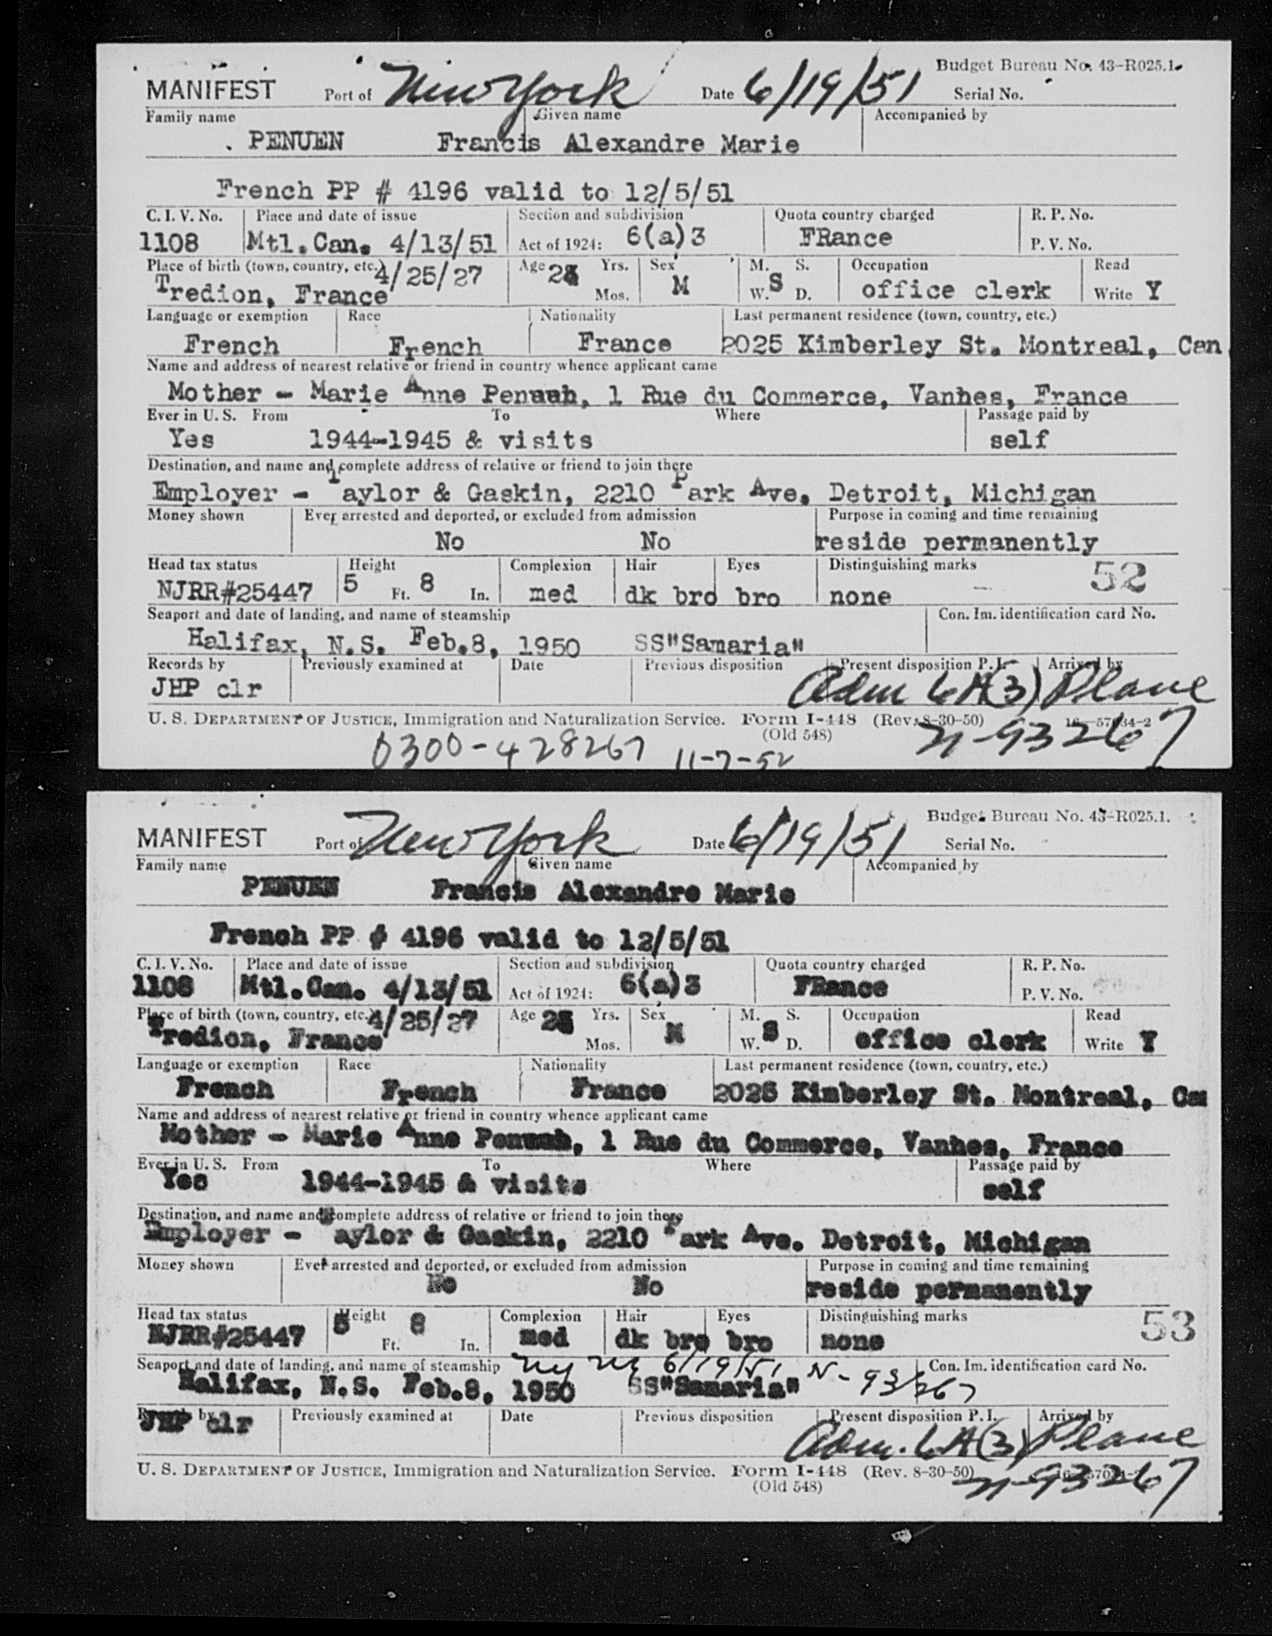 Budget Bureau No. 43-R025.1.
MANIFEST Port of New York Date 6/19/51 Serial No.
Family name Given name Accompanied by
PENUEN Francis Alexandre Marie
French PP # 4196 valid to 12/5/51
C. I. V. No. Place and date of issue Section and subdivision Quota country charged R. P. No.
1108 Mtl.Can. 4/13/51 Act of 1924: 6(a)3 FRance P. V. No.
Place of birth (town, country, etc.) 4/25/27 Age Yrs. Sex M. S. Occupation Read
Tredion, France Mos. M W. S D. office clerk Write Y
Language or exemption Race Nationality Last permanent residence (town, country, etc.)
French French France 2025 Kimberley St. Montreal, Can
Name and address of nearest relative or friend in country whence applicant came
Mother - Marie Anne 1 Rue du Commerce, Vanhes, France
Ever in U. S. From To Where Passage paid by
Yes 1944-1945 & visits self
Destination, and name and complete address of relative or friend to join there
Employer - Taylor & Gaskin, 2210 Park Ave. Detroit, Michigan
Money shown Ever arrested and deported, or excluded from admission Purpose in coming and time remaining
No No reside permanently
Head tax status Height Complexion Hair Eyes Distinguishing marks 52
NJRR#25447 5 Ft. 8 In. med dk bro bro none
Seaport and date of landing, and name of steamship Con. Im. identification card No.
Halifax, N.S. Feb.8, 1950 SS"Samaria"
Records by Previously examined at Date Previous disposition Present disposition P. I. Arrived by
JHP clr Adm 6A(3) Plane
U. S. DEPARTMENT OF JUSTICE, Immigration and Naturalization Service. Form I-448 (Rev. 8-30-50) 16-57034-2
(Old 548) N-93267
0300-428267 11-7-52
Budget Bureau No. 43-R025.1.
MANIFEST Port of New York Date 6/19/51 Serial No.
Family name Given name Accompanied by
PENUEN Francis Alexandre Marie
French PP # 4196 valid to 12/5/51
C. I. V. No. Place and date of issue Section and subdivision Quota country charged R. P. No.
1108 Mtl.Can. 4/13/51 Act of 1924: 6(a)3 FRance P. V. No.
Place of birth (town, country, etc.) 4/25/27 Age Yrs. Sex M. S. Occupation Read
Tredion, France Mos. M W. S D. office clerk Write Y
Language or exemption Race Nationality Last permanent residence (town, country, etc.)
French French France 2025 Kimberley St. Montreal, Can
Name and address of nearest relative or friend in country whence applicant came
Mother - Marie Anne 1 Rue du Commerce, Vanhes, France
Ever in U. S. From To Where Passage paid by
Yes 1944-1945 & visits self
Destination, and name and complete address of relative or friend to join there
Employer - Taylor & Gaskin, 2210 Park Ave. Detroit, Michigan
Money shown Ever arrested and deported, or excluded from admission Purpose in coming and time remaining
No No reside permanently
Head tax status Height Complexion Hair Eyes Distinguishing marks 53
NJRR#25447 5 Ft. 8 In. med dk bro bro none
Seaport and date of landing, and name of steamship NY NY 6/19/51 N-93267 Con. Im. identification card No.
Halifax, N.S. Feb.8, 1950 SS"Samaria"
Records by Previously examined at Date Previous disposition Present disposition P. I. Arrived by
JHP clr Adm. 6A(3) Plane
U. S. DEPARTMENT OF JUSTICE, Immigration and Naturalization Service. Form I-448 (Rev. 8-30-50)
(Old 548) N-93267